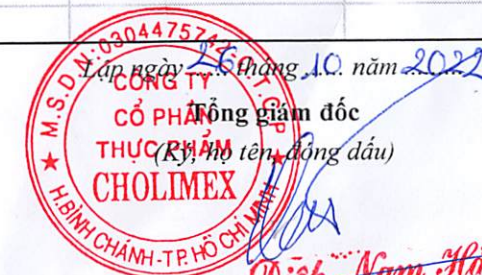 Lập ngày 26 tháng 10 năm 2022
Tổng giám đốc
(Ký, họ tên, đóng dấu)
M.S.D.N: 0304475742 - C.T.C.P
CÔNG TY
CỔ PHẦN
THỰC PHẨM
CHOLIMEX
H.BÌNH CHÁNH - T.P. HỒ CHÍ MINH
Nam